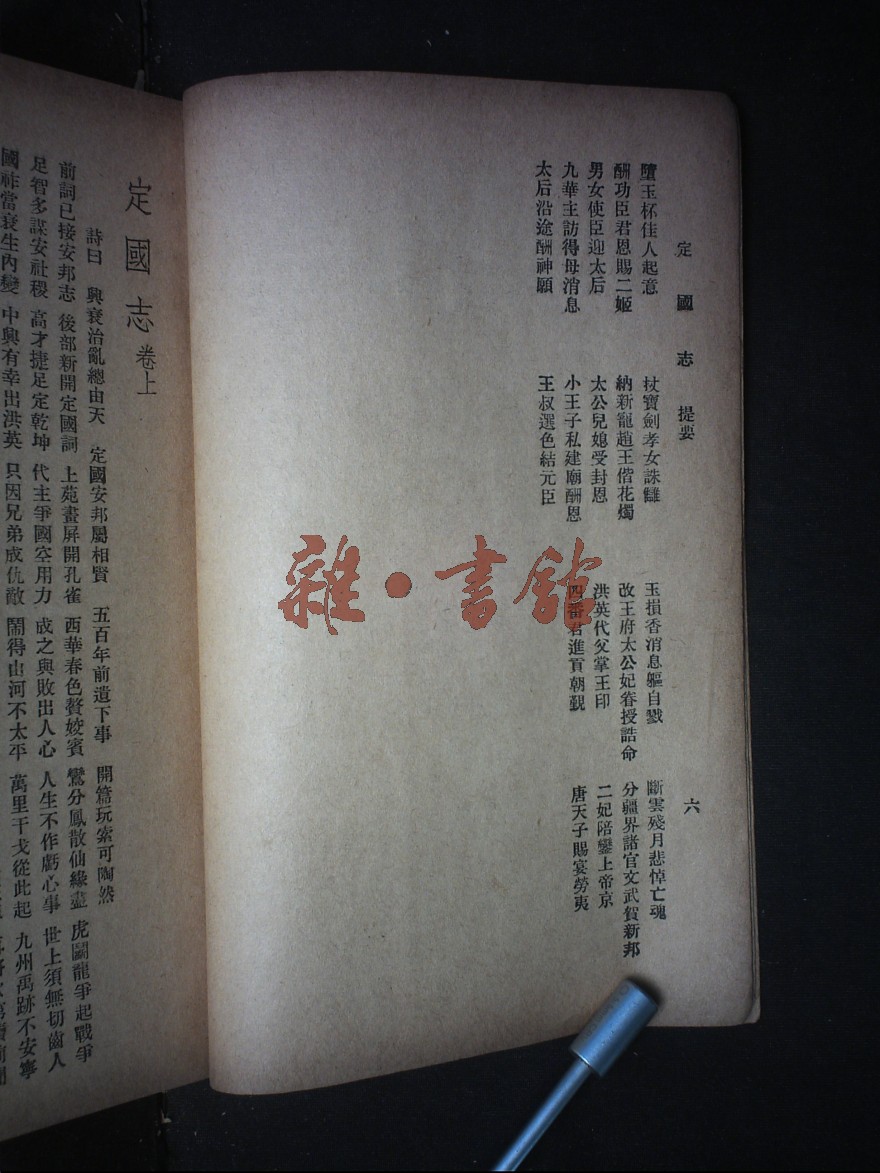 定國志 提要 六
墮玉杯佳人起意 杖寶劍孝女誅讎 玉損香消息軀自戮 斷雲殘月悲悼亡魂
酬功臣君恩賜二姬 納新寵趙王偕花燭 改王府太公妃眷授誥命 分疆界諸官文武賀新邦
男女使臣迎太后 太公兒媳受封恩 洪英代父掌王印 二妃陪鑾上帝京
九華主訪得母消息 小王子私建廟酬恩 四番君進貢朝覲 唐天子賜宴勞夷
太后沿途酬神願 王叔選色結元臣
雜·書館
定國志 卷上
詩曰 興衰治亂總由天 定國安邦屬相賢 五百年前遺下事 開篇玩索可陶然
前詞已接安邦志 後部新開定國詞 上苑畫屏開孔雀 西華春色贅姣賓 鸞分鳳散仙緣盡 虎鬭龍爭起戰爭
足智多謀安社稷 高才捷足定乾坤 代主爭國空用力 成之與敗出人心 人生不作虧心事 世上須無切齒人
國祚當衰生內變 中興有幸出洪英 只因兄弟成仇敵 鬧得山河不太平 萬里干戈從此起 九州禹跡不安寧